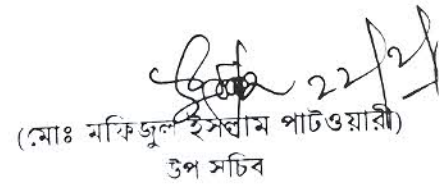 ২২/২/
(মোঃ মফিজুল ইসলাম পাটওয়ারী)
উপ সচিব